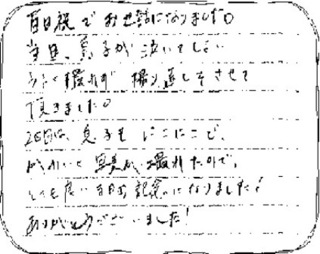 百日祝でお世話になりました。
当日、息子が泣いてしまい
うまく撮れず 撮り直しをさせて
頂きました。
26日は、息子もにこにこで、
かわいい写真が撮れたので、
とても良い百日お記念になりました!
ありがとうございました!